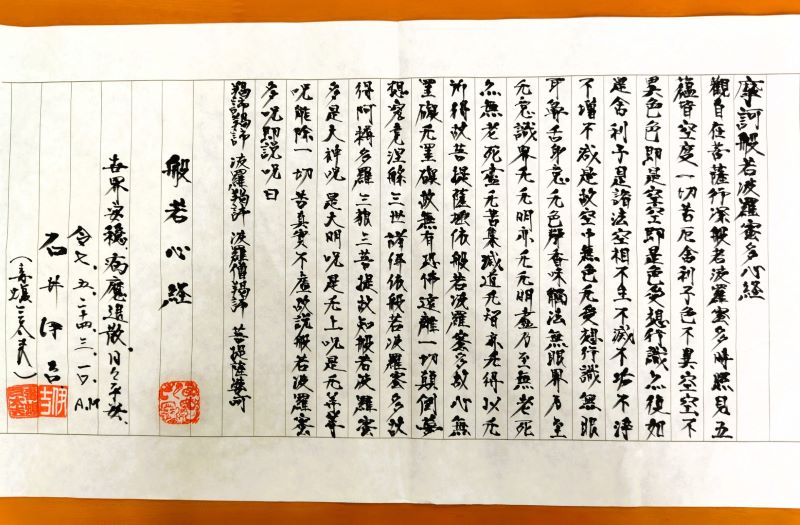 摩訶般若波羅蜜多心経
觀自在菩薩行深般若波羅蜜多時照見五
蘊皆空度一切苦厄舍利子色不異空空不
異色色即是空空即是色受想行識亦復如
是舍利子是諸法空相不生不滅不垢不浄
不増不减是故空中無色无受想行識無眼
耳鼻舌身意无色聲香味觸法無眼界乃至
无意識界无无明亦无无明盡乃至無老死
亦無老死盡无苦集滅道无智亦无得以无
所得故菩提薩埵依般若波羅蜜多故心無
罣礙无罣礙故無有恐怖遠離一切顛倒夢
想究竟涅槃三世諸佛依般若波羅蜜多故
得阿耨多羅三藐三菩提故知般若波羅蜜
多是大神呪是大明呪是无上呪是无等等
呪能除一切苦真實不虚故説般若波羅蜜
多呪即説呪曰
羯諦羯諦 波羅羯諦 波羅僧羯諦 菩提薩婆訶
般若心経
世界安穏、病魔退散、日々平安、
令七、五、二十四、三、一〇、A.M
石井